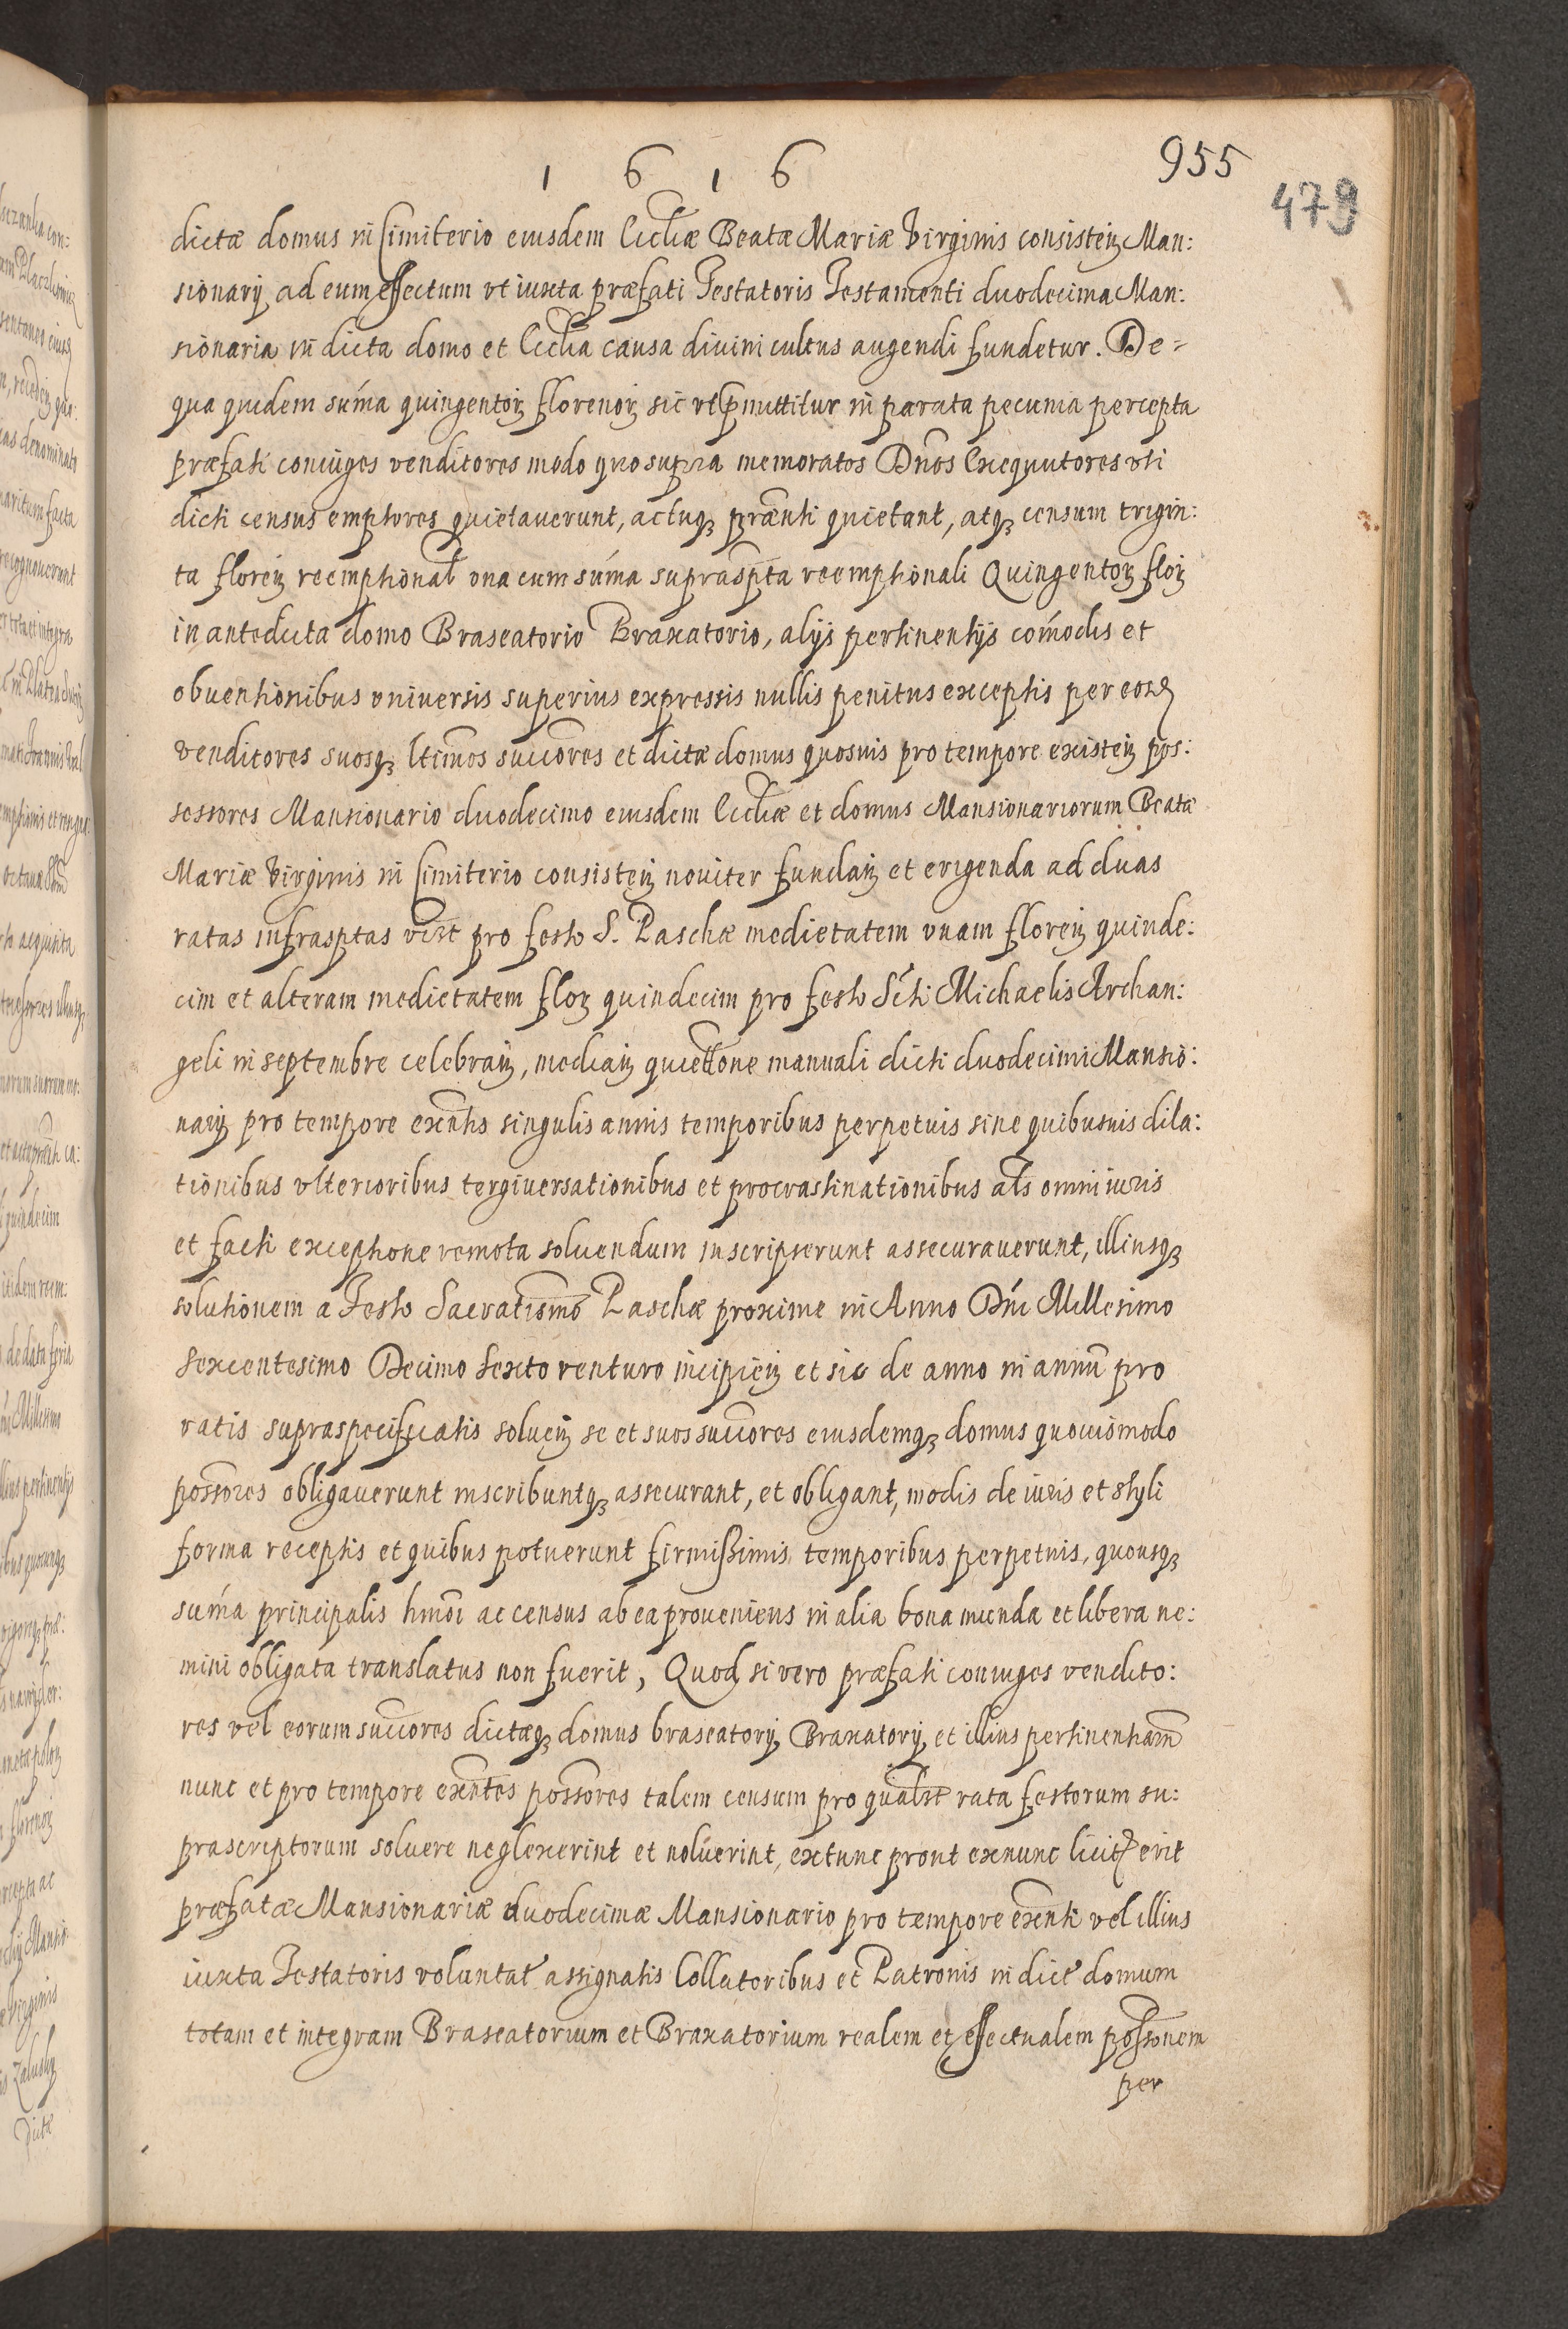 1 6 1 6
955
479
dictæ domus in Cimiterio eiusdem Eccliæ Beatæ Mariæ Virginis consisteñ Man:
sionarij ad eum effectum vt iuxta præfati Testatoris Testamenti duodecima Man:
sionaria in dicta domo et Ecclia causa divini cultus augendi fundetur. De=
qua quidem sum̃a quingentoꝝ florenoꝝ sic vt p̱mittitur in parata pecunia percepta
præfati coniuges venditores modo quo supra memoratos Dños Exequutores vti
dicti census emptores quietaverunt, actuqꝫ præñti quietant, atqꝫ censum trigin:
ta floreñ reemptional̃ vna cum sum̃a suprasp̃ta reemptionali Quingentoꝝ floꝝ
in antedicta domo Braseatorio Braxatorio, alijs pertinentijs com̃odis et
obventionibus vniversis superius expressis nullis penitus exceptis per eosd̃
venditores suosqꝫ ltim̃os succ̃ores et dictæ domus quosvis pro tempore existeñ pos:
sessores Mansionario duodecimo eiusdem Eccliæ et domus Mansionariorum Beatæ
Mariæ Virginis in Cimiterio consisteñ noviter fundañ et erigenda ad duas
ratas infrasptas vizt pro festo S. Paschæ medietatem vnam floreñ quinde:
cim et alteram medietatem floꝝ quindecim pro festo Scti Michaelis Archan:
geli in septembre celebrañ, mediañ quiettone manuali dicti duodecimi Mansio:
narij pro tempore exñtis singulis annis temporibus perpetuis sine quibusvis dila:
tionibus vlterioribus tergiversationibus et procrastinationibus al̃s omni iuris
et facti exceptione remota solvendum inscripserunt assecuraverunt, illiusqꝫ
solutionem a Festo Sacratissmo Paschæ proxime in Anno Dñi Millesimo
Sexcentesimo Decimo Sexto venturo incipieñ et sic de anno in annũ pro
ratis supraspecificatis solveñ se et suos succ̃ores eiusdemqꝫ domus quovismodo
poss̃ores obligaverunt inscribuntqꝫ assecurant, et obligant, modis de iuris et styli
forma receptis et quibus potuerunt firmißimis temporibus perpetuis, quousqꝫ
sum̃a principalis hmõi ac census ab ea proveniens in alia bona munda et libera ne:
mini obligata translatus non fuerit, Quod si vero præfati coniuges vendito:
res vel eorum succ̃ores dictæqꝫ domus braseatorij, Braxatorij, et illius pertinentiam̃
nunc et pro tempore exñtes poss̃ores talem censum pro qualt̃ rata festorum su:
prascriptorum solvere neglexerint et noluerint, extunc prout exnunc licit̃ erit
præfatæ Mansionariæ duodecimæ Mansionario pro tempore exeñti vel illius
iuxta Testatoris voluntat̃ assignatis Collatoribus et Patronis in dict̃ domum
totam et integram Braseatorium et Braxatorium realem et effectualem poss̃onem
per